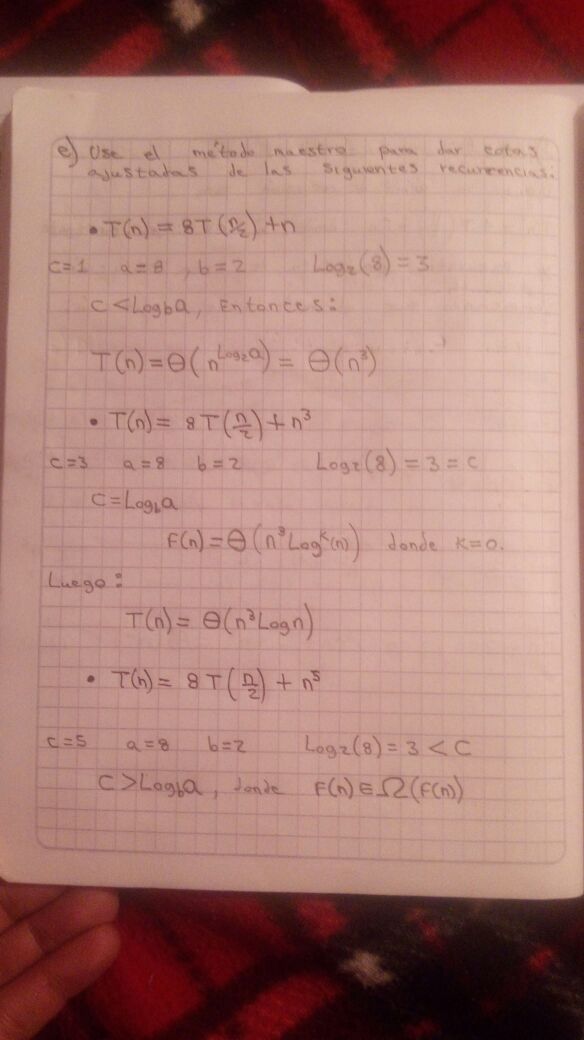 e) Use el método maestro para dar cotas
ajustadas de las siguientes recurrencias:
• T(n) = 8T(n/2) + n
c=1 a=8, b=2 Log₂(8) = 3
c < Log_b a, Entonces:
T(n) = Θ(n^(Log₂a)) = Θ(n³)
• T(n) = 8T(n/2) + n³
c=3 a=8 b=2 Log₂(8) = 3 = c
c = Log_b a
F(n) = Θ(n³ Log^k(n)) donde k=0.
Luego:
T(n) = Θ(n³Log n)
• T(n) = 8T(n/2) + n⁵
c=5 a=8 b=2 Log₂(8) = 3 < c
c > Log_b a, donde F(n) ∈ Ω(F(n))